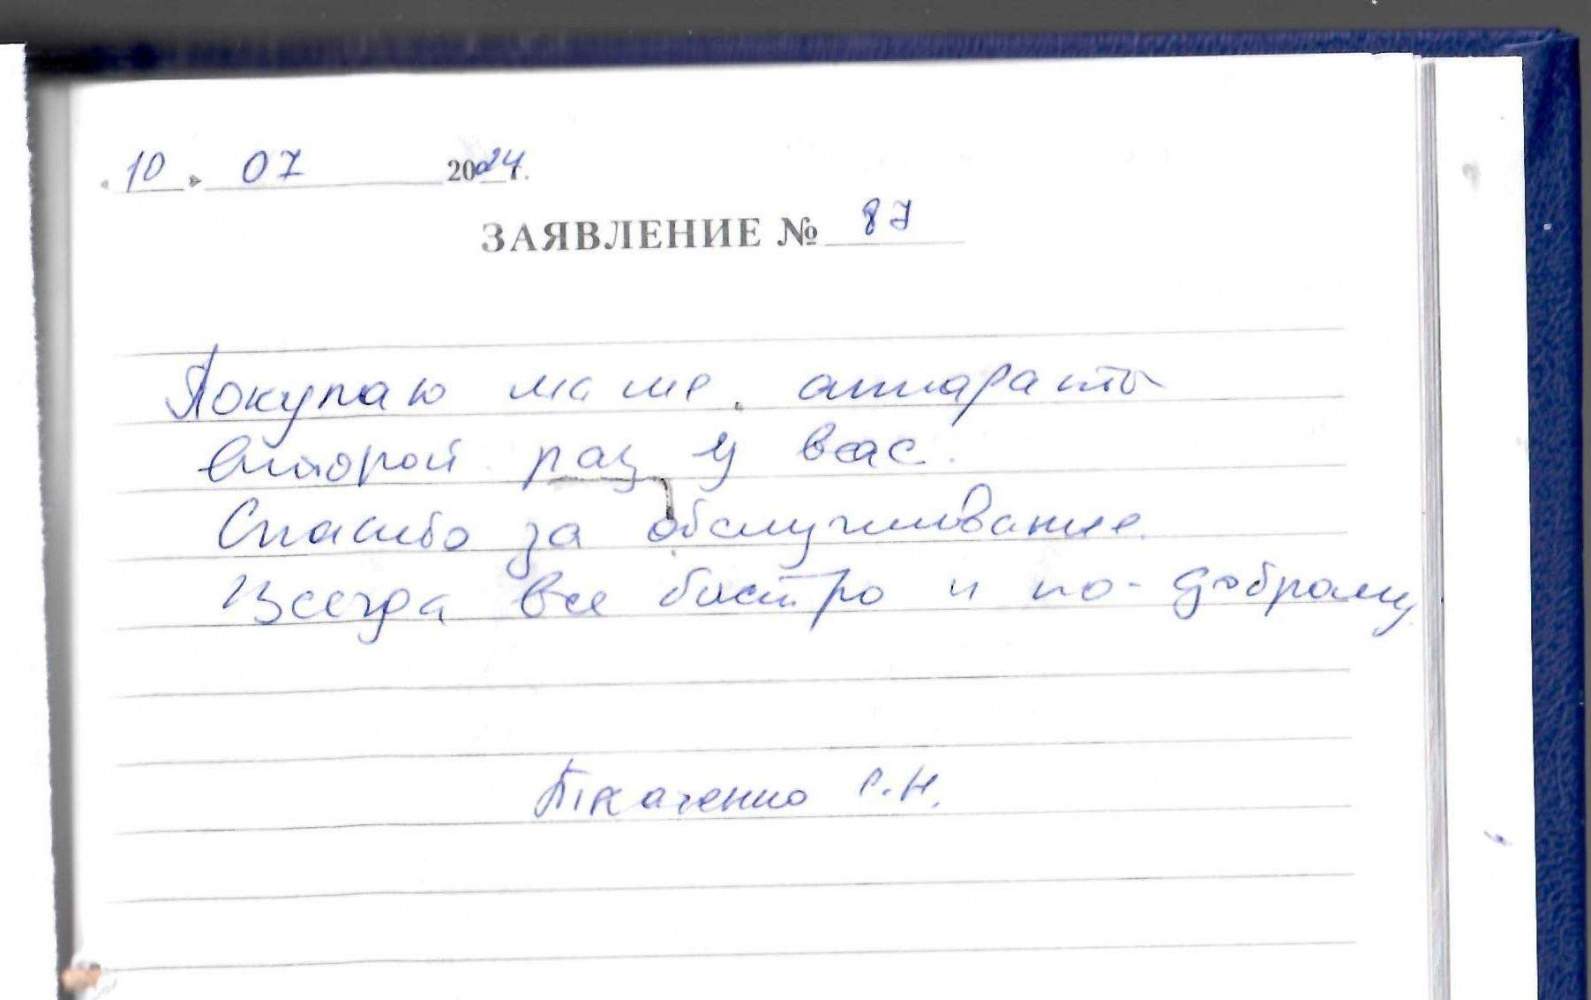 « 10 » 07 2024 г.
ЗАЯВЛЕНИЕ № 87
Покупаю маме аппараты
второй раз у вас.
Спасибо за обслуживание.
Всегда все быстро и по-доброму
Ткаченко С.Н.